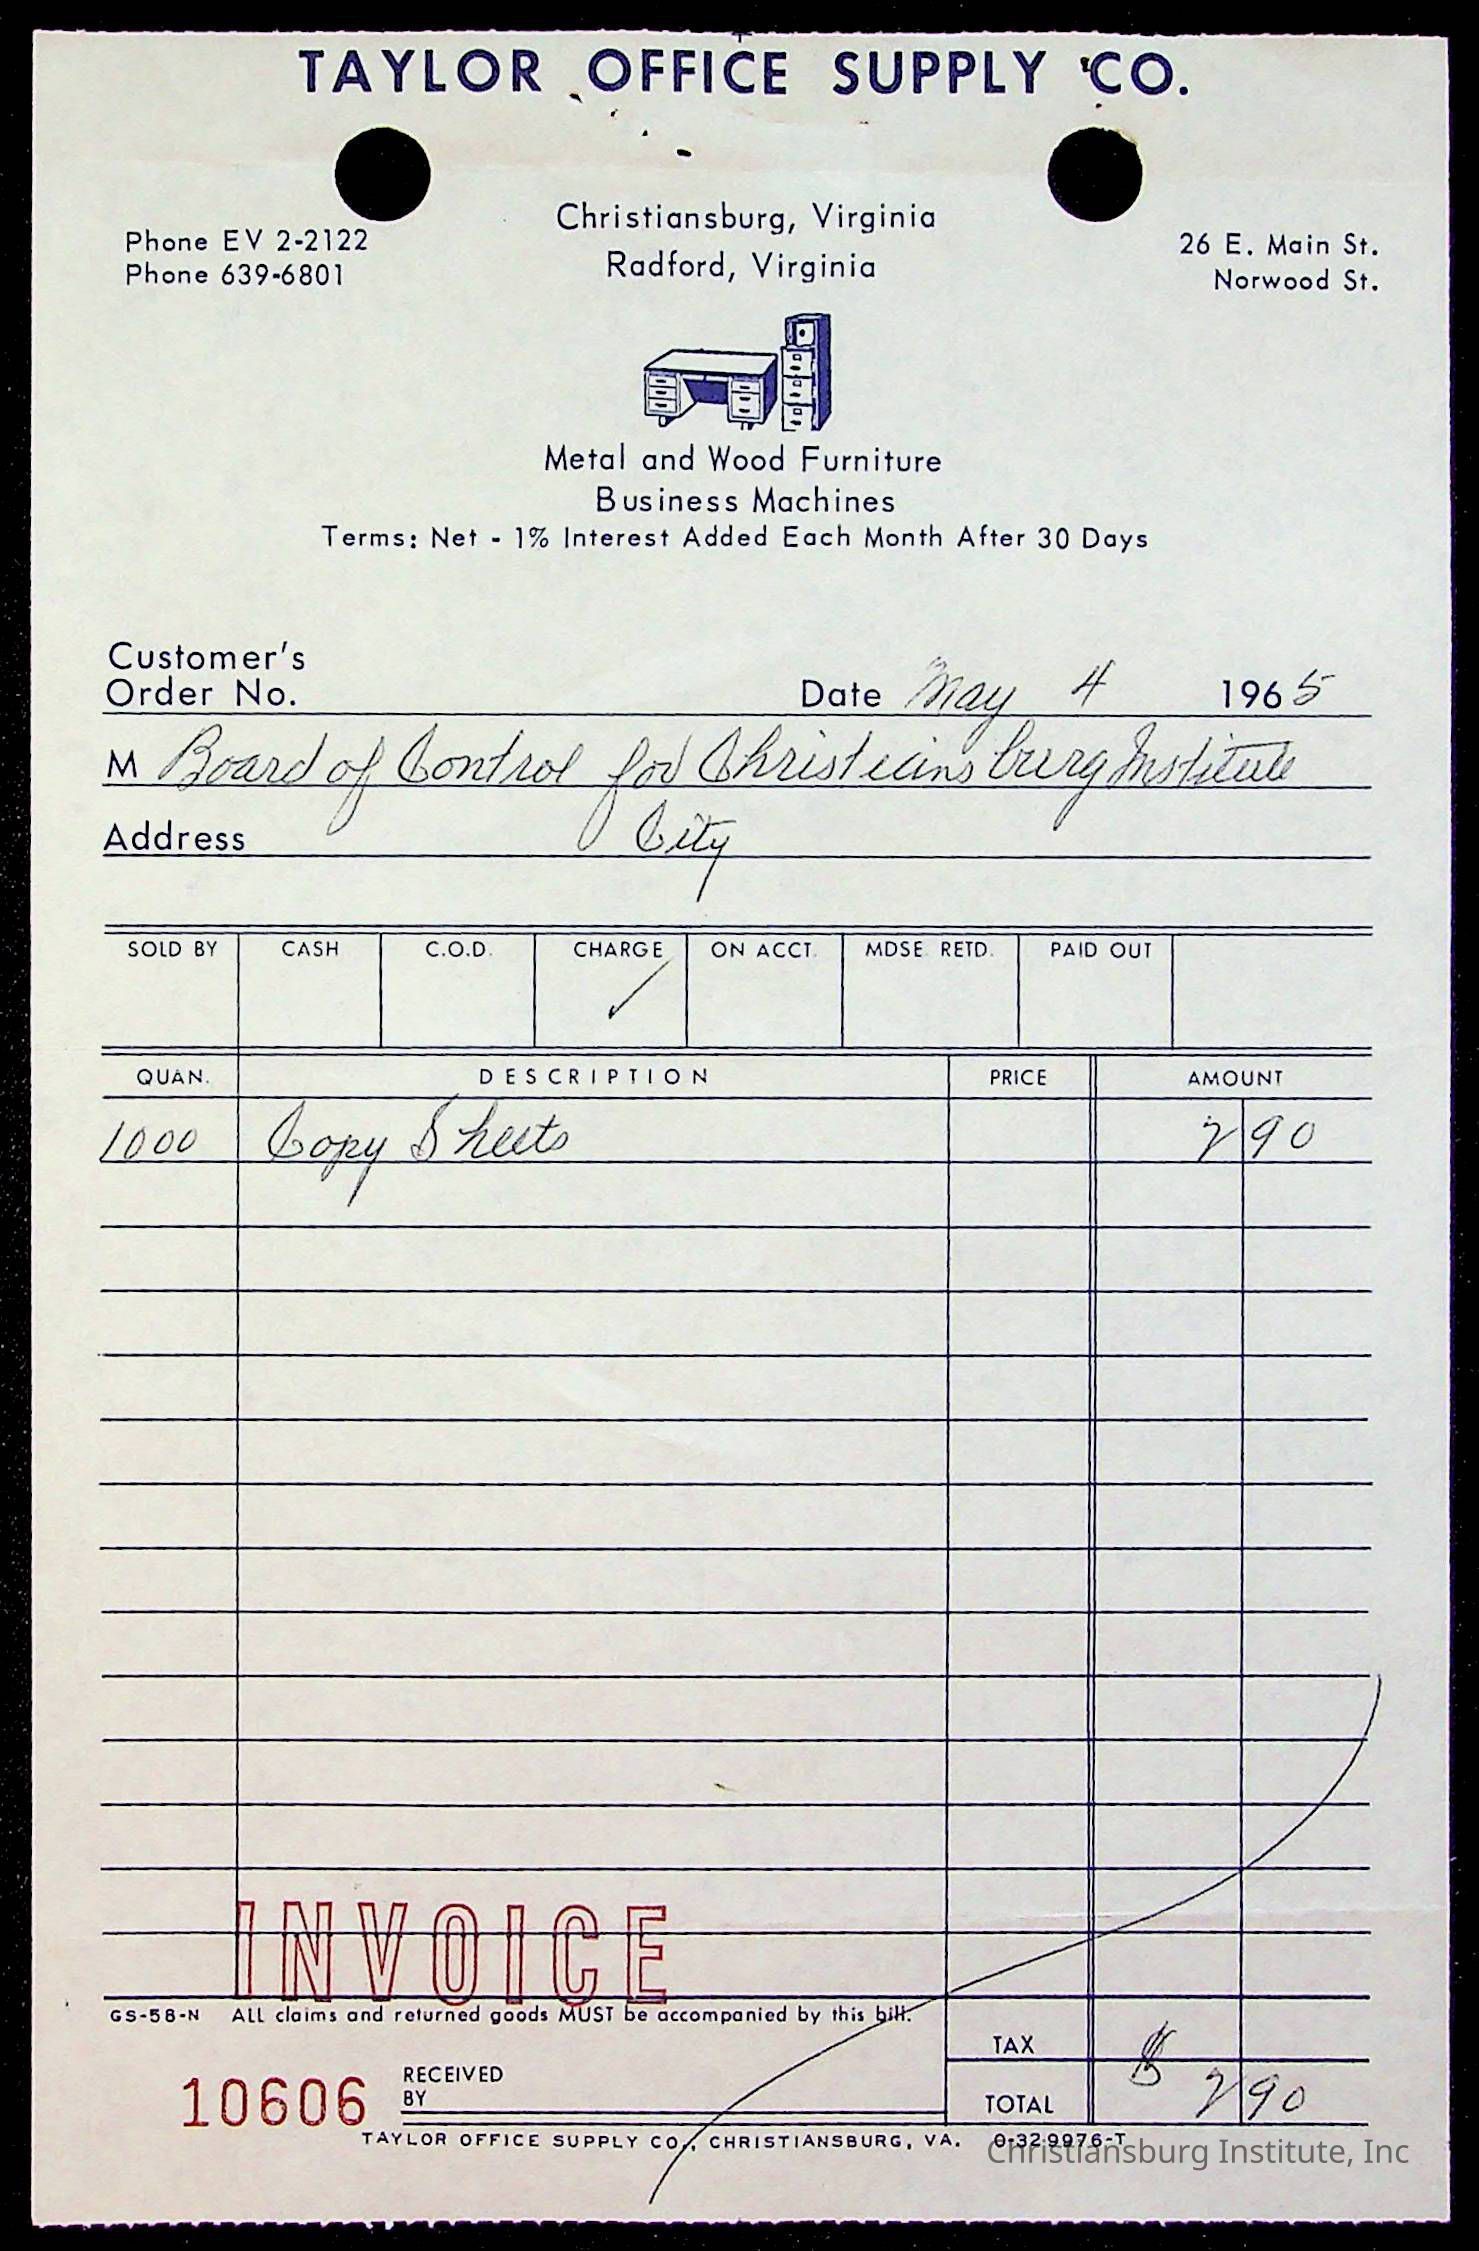 TAYLOR OFFICE SUPPLY CO.
Christiansburg, Virginia
Radford, Virginia
Phone EV 2-2122
Phone 639-6801
26 E. Main St.
Norwood St.
Metal and Wood Furniture
Business Machines
Terms: Net - 1% Interest Added Each Month After 30 Days
Customer's
Order No.
Date May 4 1965
M Board of Control for Christiansburg Institute
Address City
SOLD BY CASH C.O.D. CHARGE ON ACCT. MDSE. RETD. PAID OUT
✓
QUAN. DESCRIPTION PRICE AMOUNT
1000 Copy Sheets 2 90
INVOICE
GS-58-N ALL claims and returned goods MUST be accompanied by this bill.
TAX
10606 RECEIVED
BY
TOTAL $ 2 90
TAYLOR OFFICE SUPPLY CO., CHRISTIANSBURG, VA. 0-329976-T
Christiansburg Institute, Inc